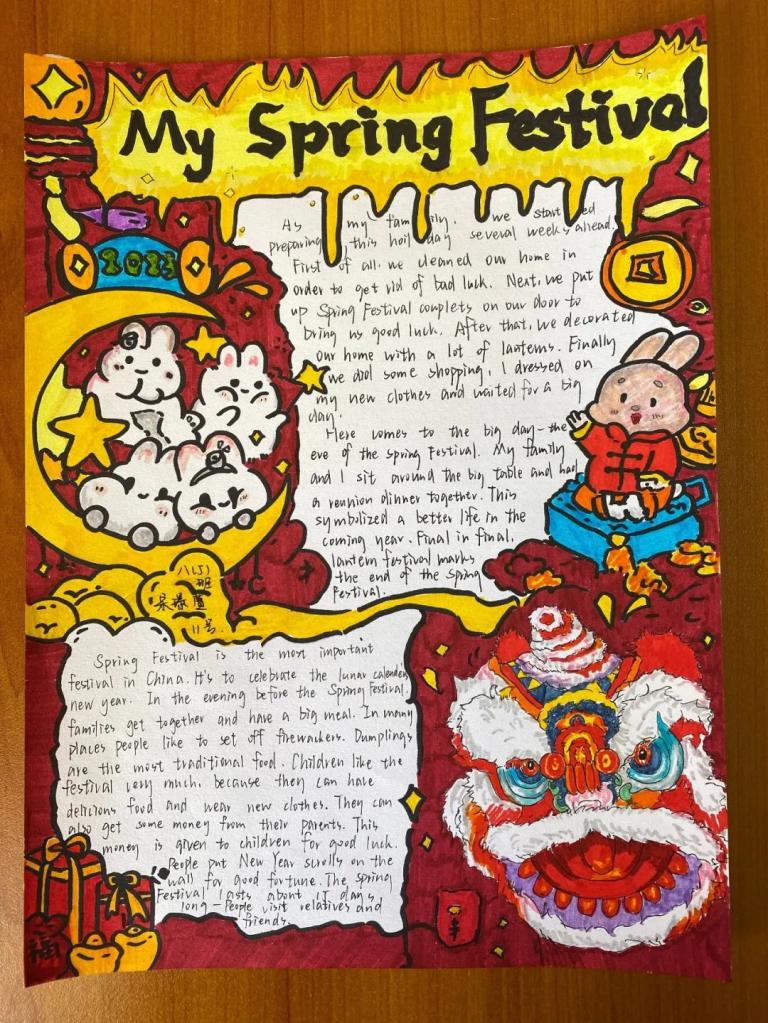 My Spring Festival
2023
As my family, we started
preparing this holiday several weeks ahead.
First of all, we cleaned our home in
order to get rid of bad luck. Next, we put
up Spring Festival couplets on our door to
bring us good luck. After that, we decorated
our home with a lot of lantems. Finally
we did some shopping, I dressed on
my new clothes and waited for a big
day.
Here comes to the big day-the
eve of the spring Festival. My family
and I sit around the big table and had
a reunion dinner together. This
symbolized a better life in the
coming year. Final in final,
lantern festival marks
the end of the Spring
Festival.
八(5)
班
11号
Spring Festival is the most important
festival in China. It's to celebrate the lunar calender
new year. In the evening before the Spring Festival,
families get together and have a big meal. In many
places people like to set off firewackers. Dumplings
are the most traditional food. Children like the
festival very much, because they can have
delicious food and wear new clothes. They can
also get some money from their parents. This
money is given to children for good luck.
People put New Year scrolls on the
wall for good fortune. The Spring
Festival lasts about 15 days
long-People visit relatives and
friends.
福